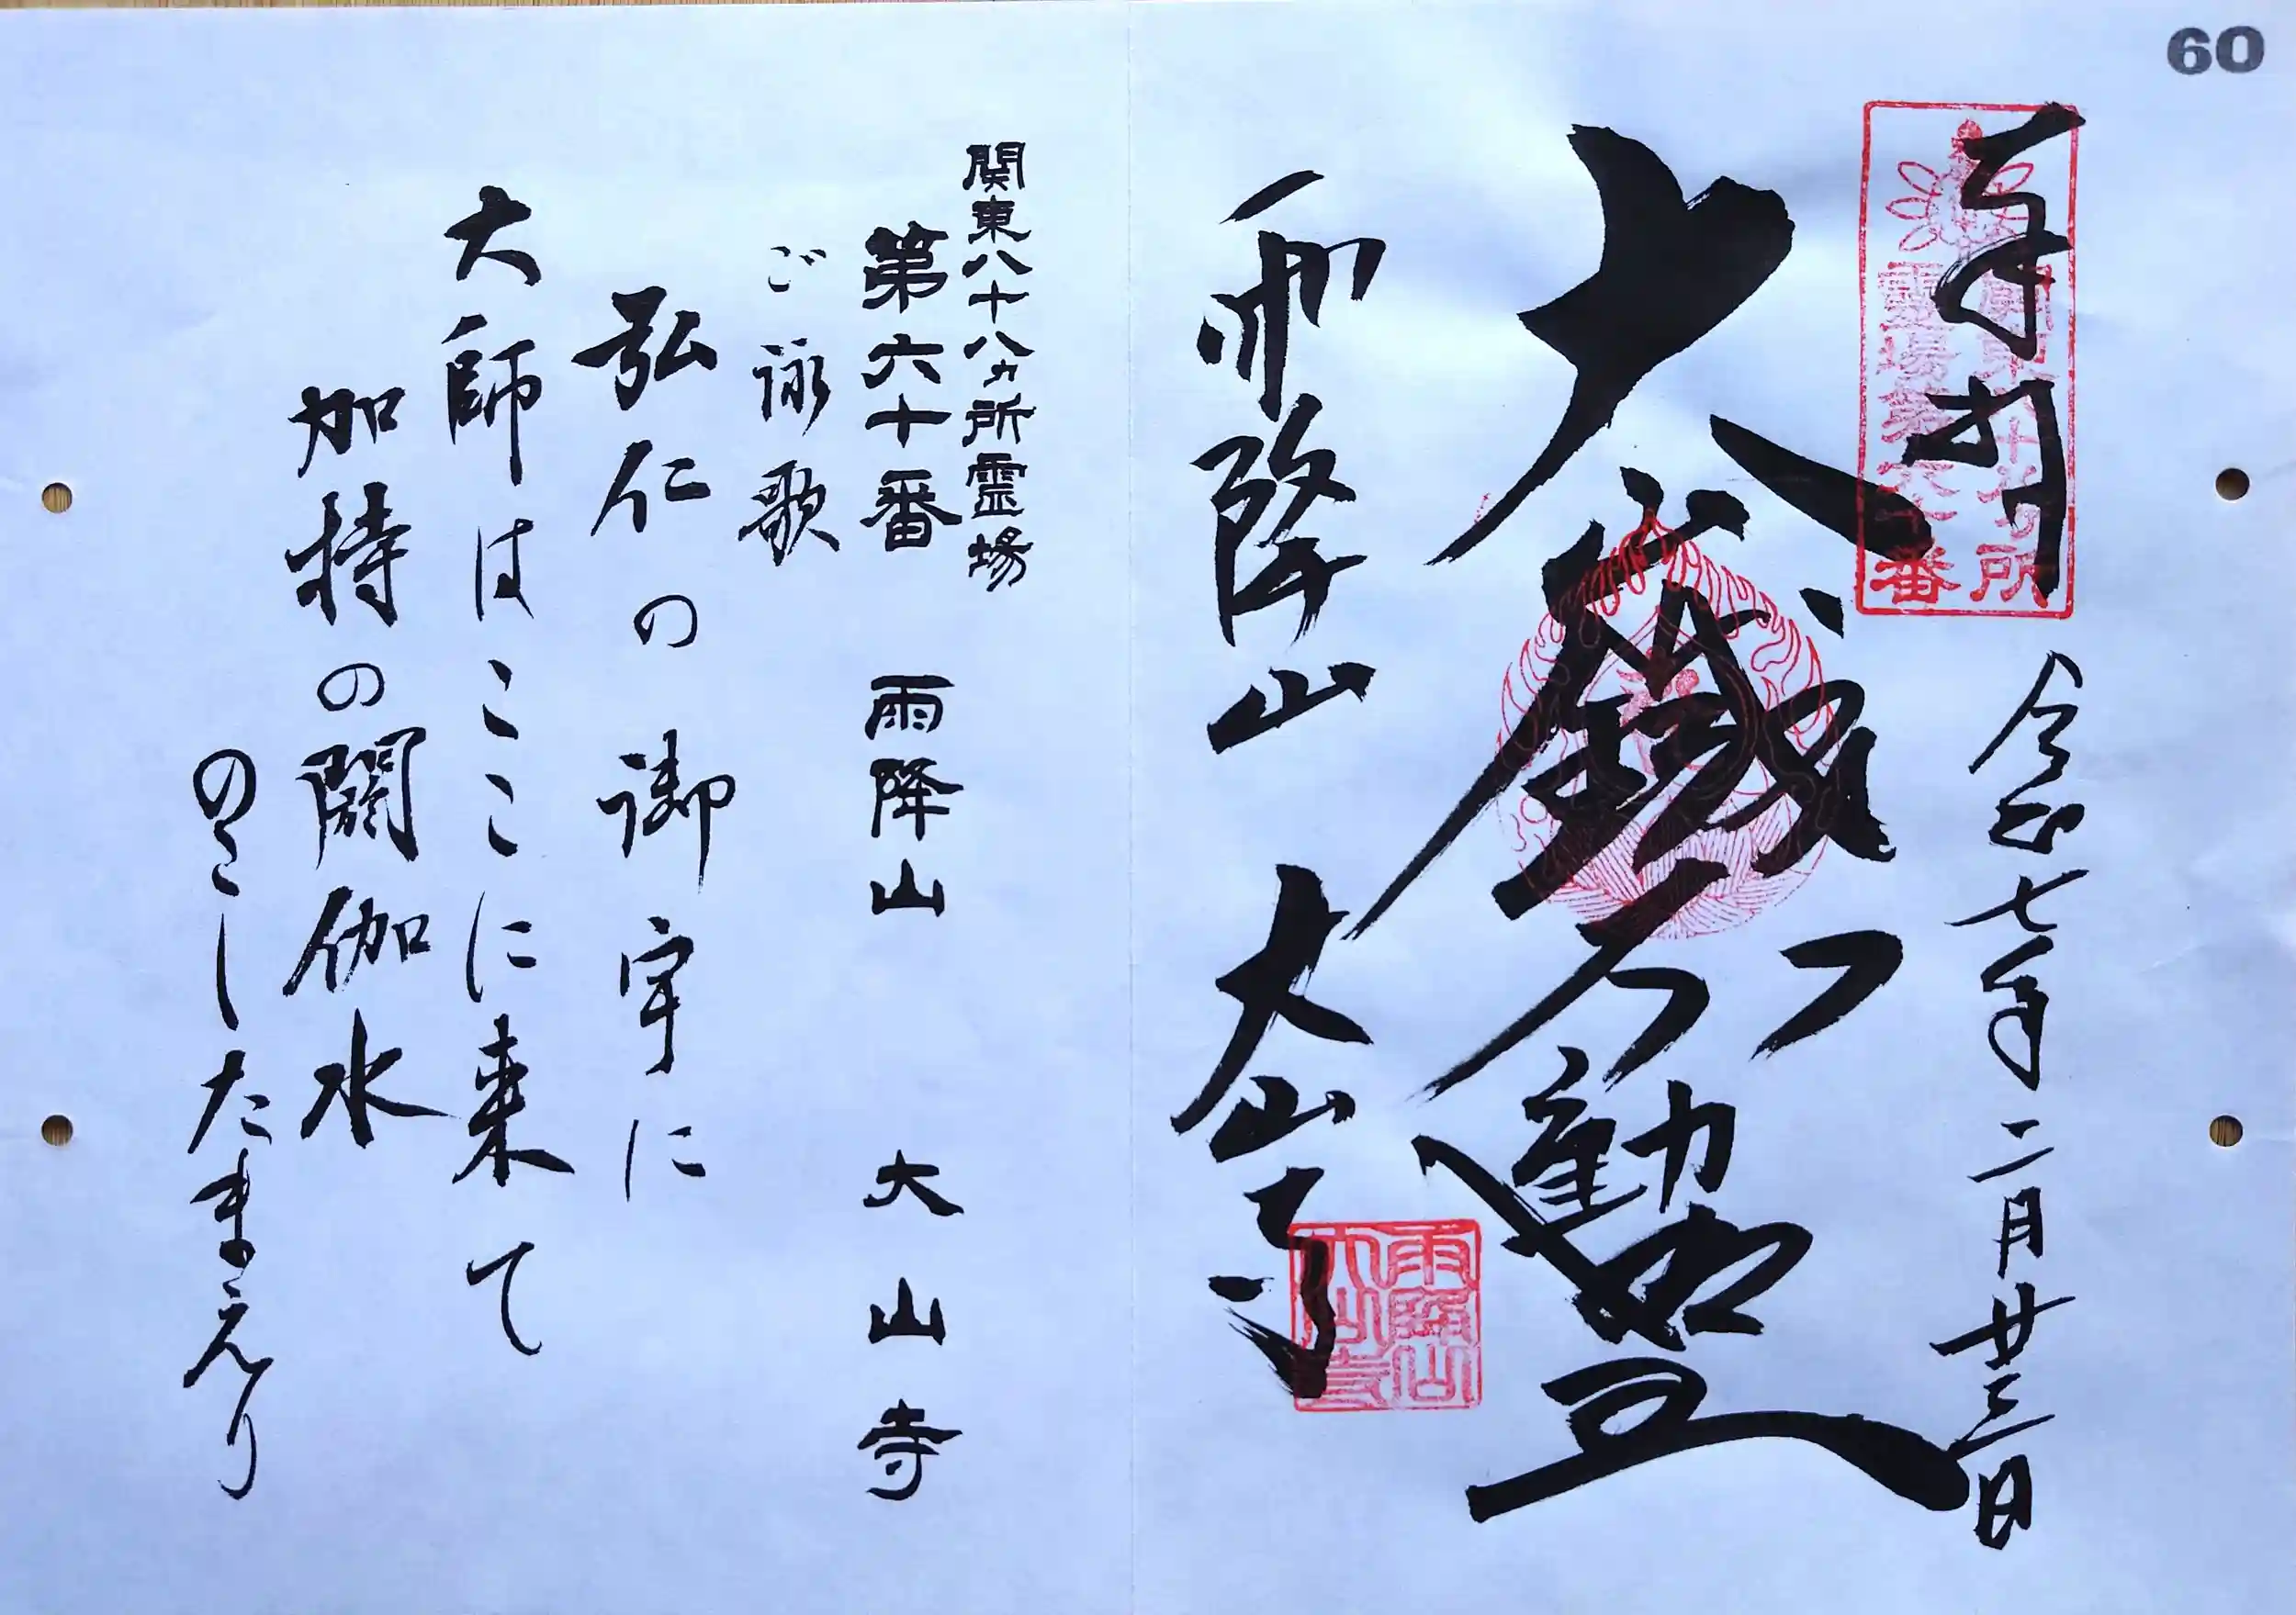 60
奉拝
関東八十八ヶ所
霊場第六十番
令和七年二月廿三日
大鐵不動明王
雨降山 大山寺
雨降山
大山寺
関東八十八ヵ所霊場
第六十番 雨降山 大山寺
ご詠歌
弘仁の御宇に
大師はここに来て
加持の閼伽水
のこしたまえり